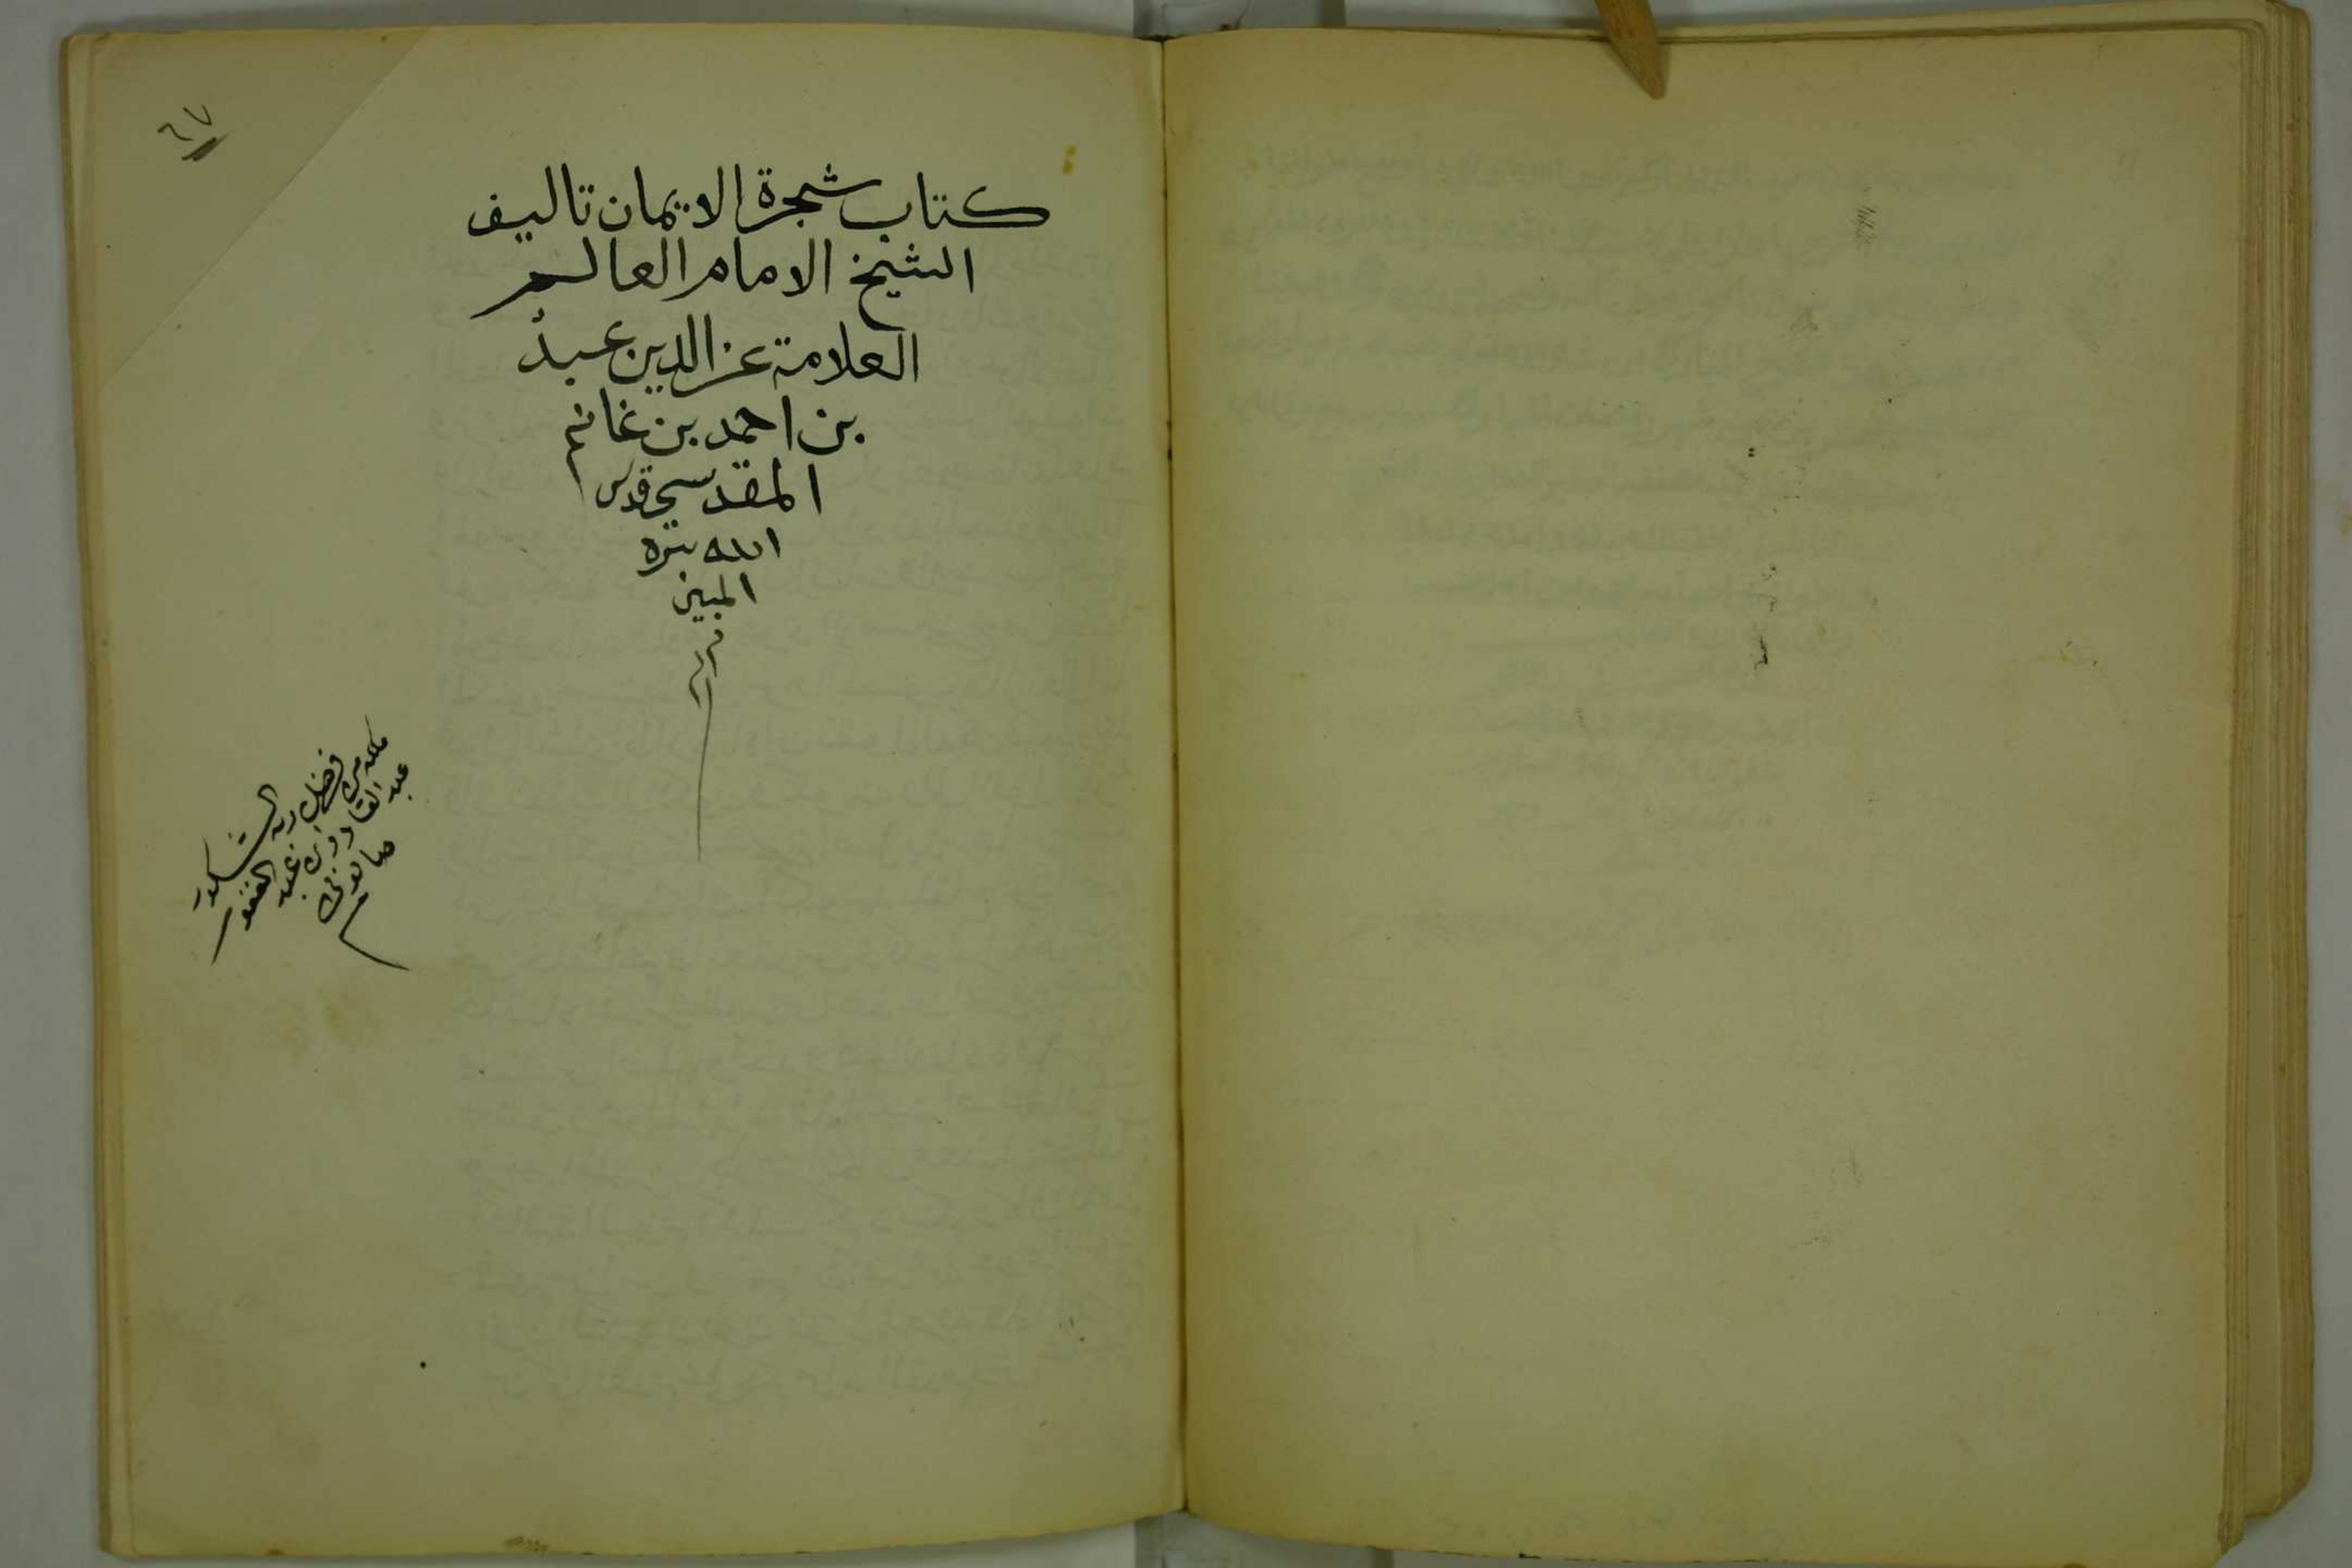 ٦٧
كتاب شجرة الايمان تاليف
الشيخ الامام العالم
العلامة عز الدين عبد
بن احمد بن غانم
المقدسي قدس
الله سره
المبين
من فضل ربه الشكور
عبد القادر بن عبد الغفور